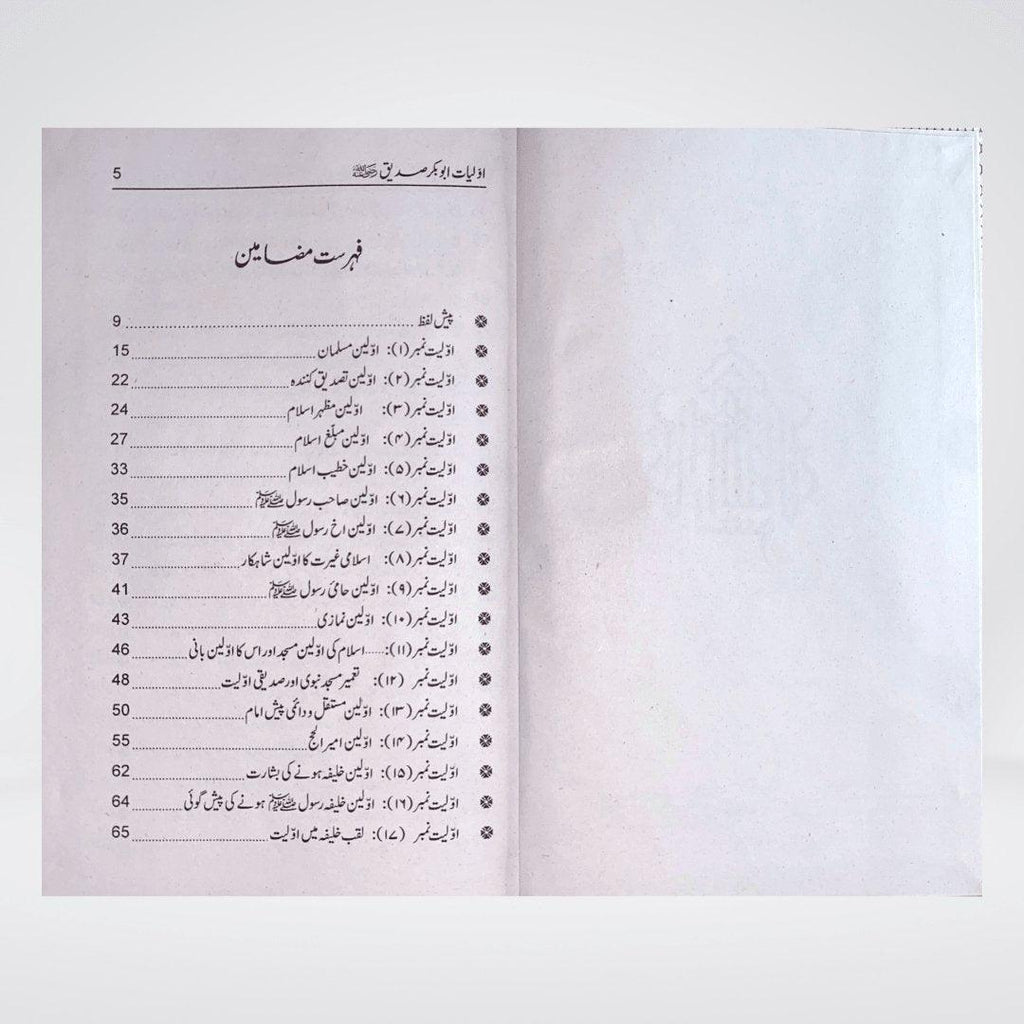 اوّلیات ابوبکر صدیق رضی اللہ عنہ 5
فہرست مضامین
پیش لفظ ........ 9
اوّلیت نمبر (۱): اوّلین مسلمان ........ 15
اوّلیت نمبر (۲): اوّلین تصدیق کنندہ ........ 22
اوّلیت نمبر (۳): اوّلین مظہر اسلام ........ 24
اوّلیت نمبر (۴): اوّلین مبلّغ اسلام ........ 27
اوّلیت نمبر (۵): اوّلین خطیب اسلام ........ 33
اوّلیت نمبر (۶): اوّلین صاحب رسول ﷺ ........ 35
اوّلیت نمبر (۷): اوّلین اخ رسول ﷺ ........ 36
اوّلیت نمبر (۸): اسلامی غیرت کا اوّلین شاہکار ........ 37
اوّلیت نمبر (۹): اوّلین حامیٔ رسول ﷺ ........ 41
اوّلیت نمبر (۱۰): اوّلین نمازی ........ 43
اوّلیت نمبر (۱۱): ...... اسلام کی اوّلین مسجد اور اس کا اوّلین بانی ........ 46
اوّلیت نمبر (۱۲): تعمیر مسجد نبوی اور صدیقی اوّلیت ........ 48
اوّلیت نمبر (۱۳): اوّلین مستقل و دائمی پیش امام ........ 50
اوّلیت نمبر (۱۴): اوّلین امیر الحج ........ 55
اوّلیت نمبر (۱۵): اوّلین خلیفہ ہونے کی بشارت ........ 62
اوّلیت نمبر (۱۶): اوّلین خلیفہ رسول ﷺ ہونے کی پیش گوئی ........ 64
اوّلیت نمبر (۱۷): لقب خلیفہ میں اوّلیت ........ 65